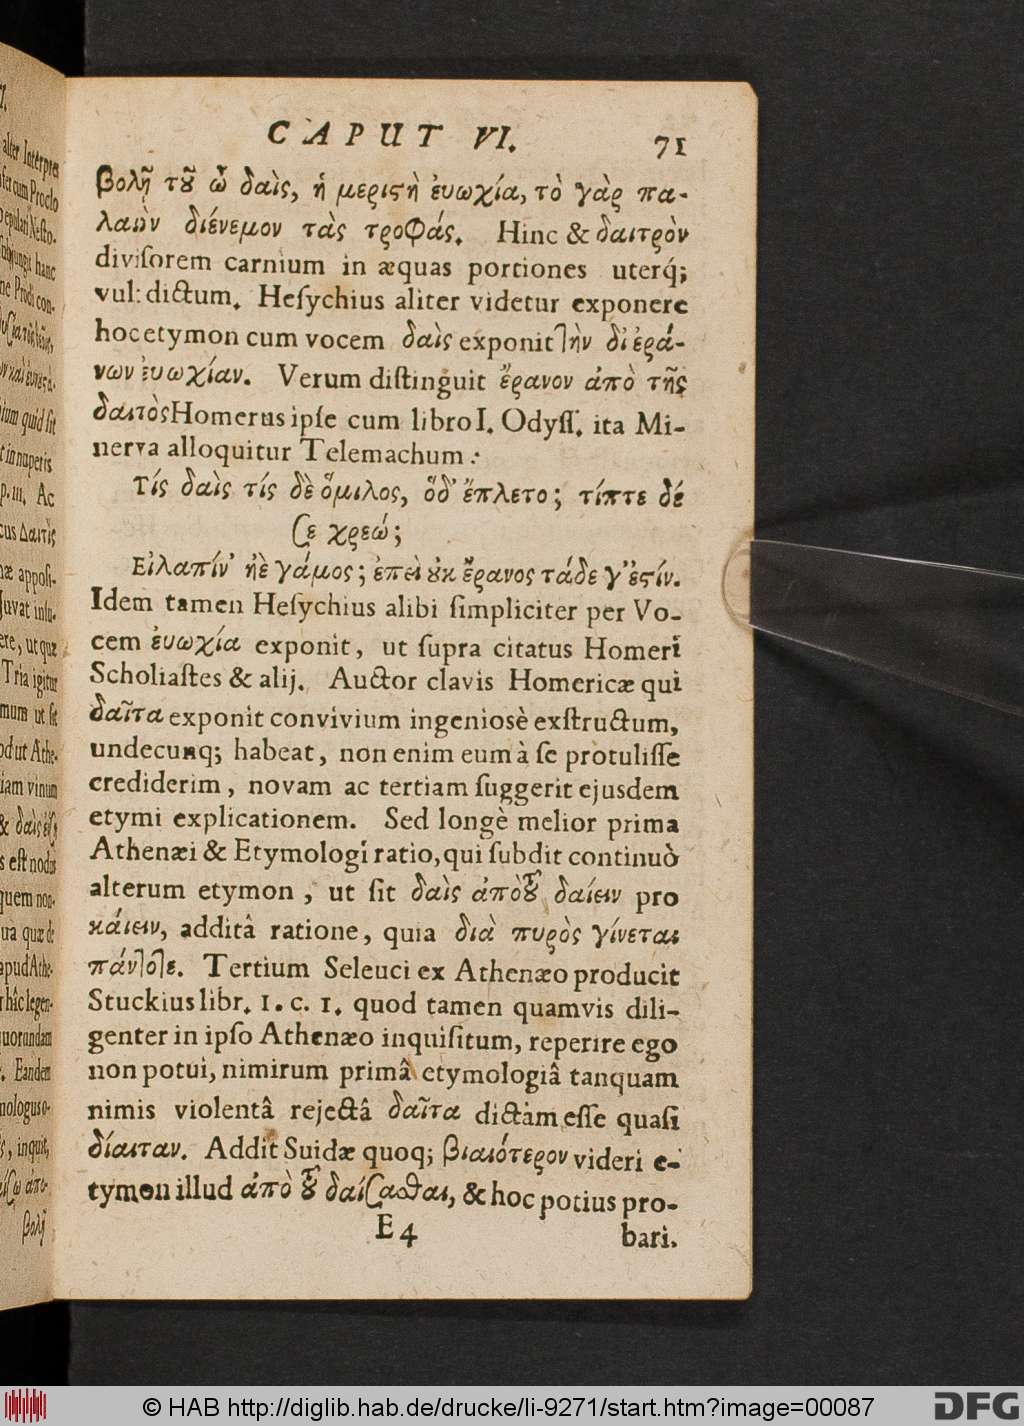 CAPUT VI. 71
βολῆ τȣ͂ ὦ δαὶς, ἡ μεριϛὴ ἐυωχία, τὸ γὰρ πα-
λαιὸν διένεμον τὰς τροφάς. Hinc & δαιτρὸν
diviſorem carnium in æquas portiones uterq́;
vul: dictum. Heſychius aliter videtur exponere
hoc etymon cum vocem δαὶς exponit τὴν δι' ἐρά-
νων ἐυωχίαν. Verum diſtinguit ἔρανον ἀπὸ τῆς
δαιτὸς Homerus ipſe cum libro I. Odyſſ. ita Mi-
nerva alloquitur Telemachum:
Τίς δαὶς τίς δὲ ὅμιλος, ὅδ' ἔπλετο; τίπτε δέ
σε χρεώ;
Εἰλαπίν' ἠὲ γάμος; ἐπεὶ ȣκ ἔρανος τάδε γ' ἐϛίν.
Idem tamen Heſychius alibi ſimpliciter per Vo-
cem ἐυωχία exponit, ut ſupra citatus Homeri
Scholiaſtes & alij. Auctor clavis Homericæ qui
δαῖτα exponit convivium ingeniosè exſtructum,
undecunq; habeat, non enim eum à ſe protuliſſe
crediderim, novam ac tertiam ſuggerit ejusdem
etymi explicationem. Sed longè melior prima
Athenæi & Etymologi ratio, qui ſubdit continuò
alterum etymon, ut ſit δαὶς ἀπὸ τȣ͂ δαίειν pro
κάιειν, additâ ratione, quia διὰ πυρὸς γίνεται
πάντοτε. Tertium Seleuci ex Athenæo producit
Stuckius libr. 1. c. 1. quod tamen quamvis dili-
genter in ipſo Athenæo inquiſitum, reperire ego
non potui, nimirum primâ etymologiâ tanquam
nimis violentâ rejectâ δαῖτα dictam eſſe quaſi
δίαιταν. Addit Suidæ quoq; βιαιότερον videri e-
tymon illud ἀπὸ τȣ͂ δαίσασθαι, & hoc potius pro-
E 4 bari.
© HAB http://diglib.hab.de/drucke/li-9271/start.htm?image=00087
DFG